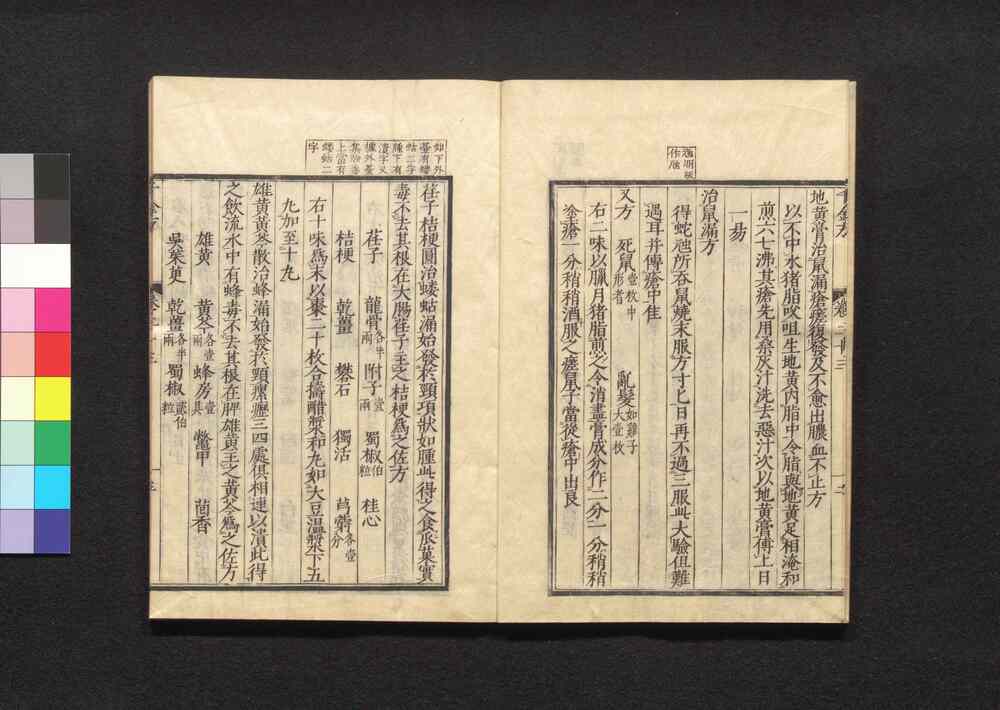 地黄膏治鼠漏瘡瘥復發及不愈出膿血不止方
以不中水猪脂㕮咀生地黄内脂中令脂與地黄足相淹和
煎六七沸其瘡先用桑灰汁洗去惡汁次以地黄膏傅上日
一易
治鼠漏方
得蛇虺所吞鼠燒末服方寸匕日再不過三服此大驗但難
遇耳并傅瘡中佳
又方　死鼠壹枚中形者　亂髮如雞子大壹枚
右二味以臘月猪脂煎之令消盡膏成分作二分一分稍稍
塗瘡一分稍稍酒服之瘥鼠子當從瘡中出良
如下外
臺有螻
蛄二字
腫下有
潰字又
據外臺
集驗毒
上當有
螻蛄二
字
荏子桔梗圓治螻蛄漏始發於頸項狀如腫此得之食瓜菓實
毒不去其根在大腸荏子主之桔梗爲之佐方
荏子　龍骨各半兩　附子壹兩　蜀椒伯粒　桂心
桔梗　乾薑　礬石　獨活　芎藭各壹分
右十味爲末以棗二十枚合擣醋漿和丸如大豆温漿下五
丸加至十丸
雄黄黄芩散治蜂漏始發於頸瘰癧三四處俱相連以潰此得
之飲流水中有蜂毒不去其根在脾雄黄主之黄芩爲之佐方
雄黄　黄芩各壹兩　蜂房壹具　鼈甲　茴香
吳茱萸　乾薑各半兩　蜀椒貳伯粒